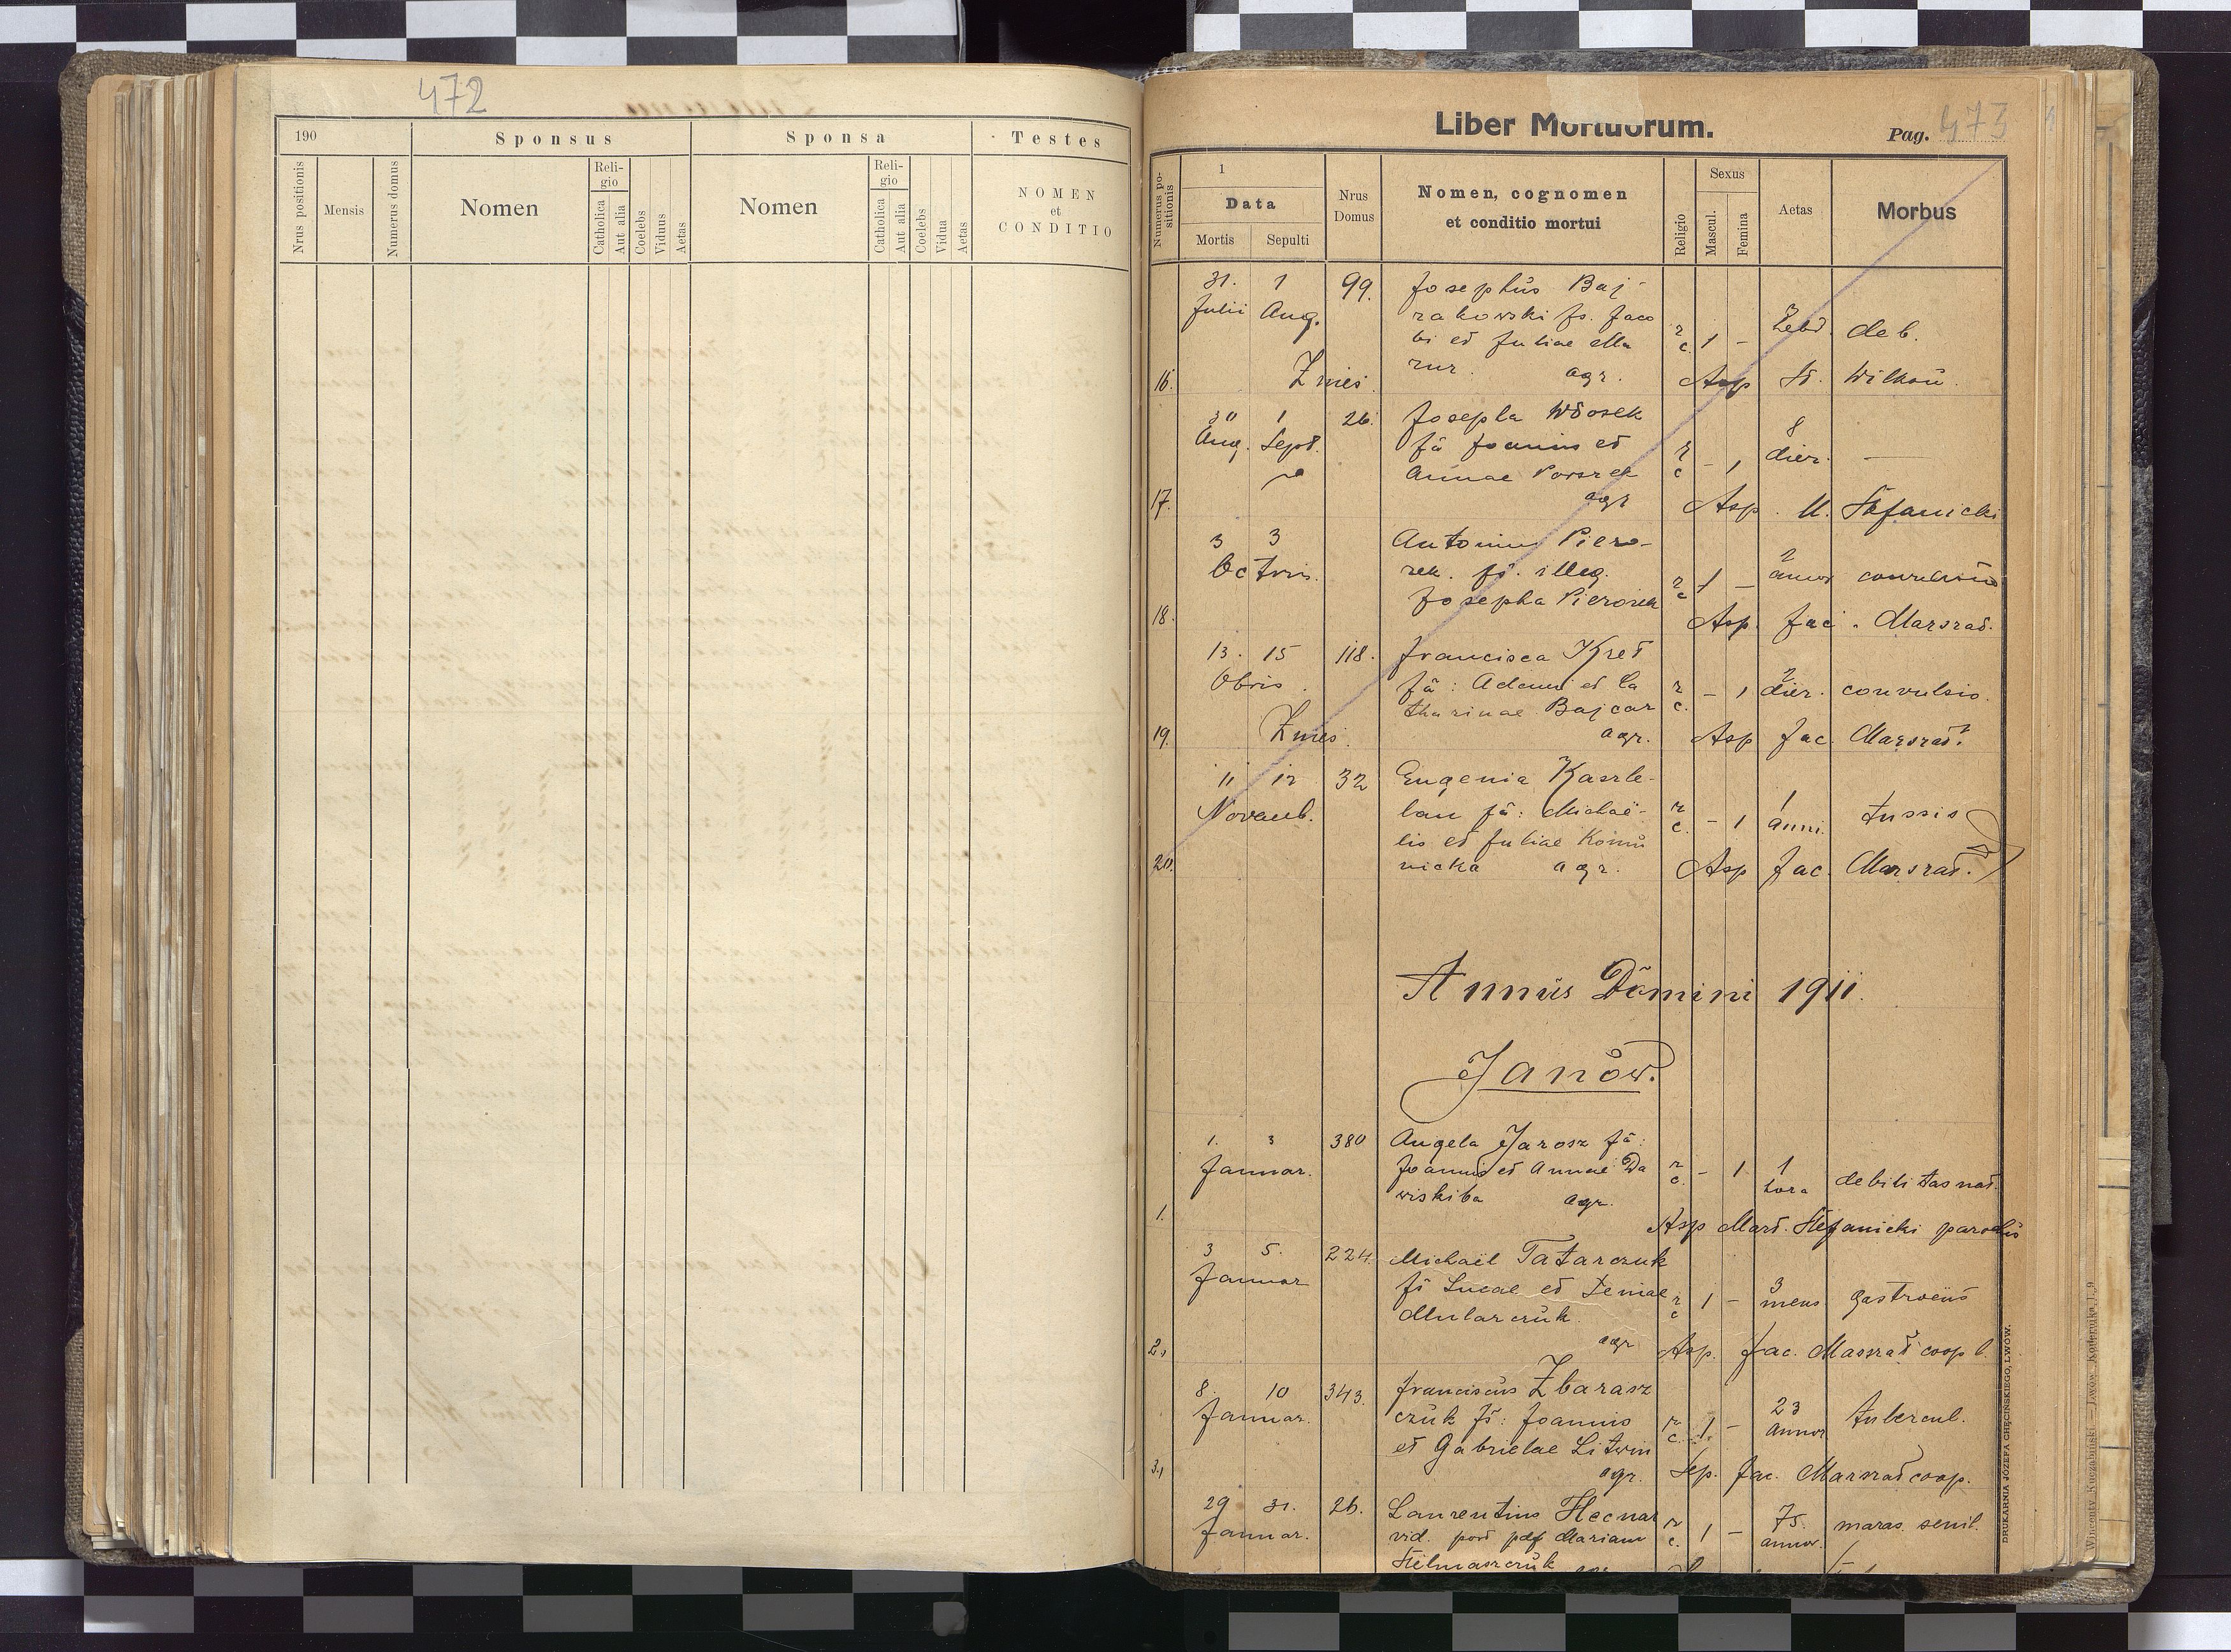 472
190
Sponsus
Sponsa
Testes
Nrus positionis
Mensis
Numerus domus
Nomen
Reli-
gio
Catholica
Aut alia
Coelebs
Viduus
Aetas
Nomen
Reli-
gio
Catholica
Aut alia
Coelebs
Vidua
Aetas
NOMEN
et
CONDITIO
Liber Mortuorum.
Pag. 473
Numerus po-
sitionis
1
Data
Mortis
Sepulti
Nrus
Domus
Nomen, cognomen
et conditio mortui
Religio
Sexus
Mascul.
Femina
Aetas
Morbus
31. 1 99. Josephus Baj-
Julii Aug. rakowski fs. Jaco
bi et Juliae Ma r c. 1 - deb.
zur. agr.
16. Asp
26. Josepha Włosek
Aug. Sept. fa Joannis et 8
Annae r c - 1 dier. —
17. agr Asp. M. Stefanicki
3 3 Antonius Piero-
Octbris. zek. fs. illeg. r c 1 - 2 annor
Josepha Pierozek
18. Asp. Jac. Marszał.
13. 15 118. Francisca Kret
Obris. fa: Adami et Ca r c. - 1 2 dier. convulsio.
tharinae Bajcar
19. agr. Asp Jac. Marszał.
11 12 32 Eugenia Kaszte-
Novemb. lan fa: Michaë- r c. - 1 1 anni. tussis
lis et Juliae Komu
20. nicka agr. Asp Jac. Marszał.
Annus Domini 1911.
Janów.
1. 3 380 Angela Jarosz fa:
Januar. Joannis et Annae Da r c. - 1 1 hora debilitas nat.
wiskiba agr.
1. Asp Mart. Stefanicki parochus
3 5. 224. Michaël Tatarczuk
Januar fs Lucae et Xeniae r c 1 - 3 mens
Mularczuk
2. agr Asp. Jac. Marszał coop
8. 10 343. Franciscus Zbarasz
Januar. czuk fs: Joannis r c. 1. - 23 annor tubercul.
et Gabrielae Litwin
3. agr. Sep. Jac. Marszał coop.
29 31. 26. Laurentius Hecnar
Januar. vid. post Mariam r c. 1 - 75 annor. maras. senil.
Stelmaszczuk agr
DRUKARNIA JÓZEFA CHĘCIŃSKIEGO, LWÓW.
Wincenty Kuczabiński — Lwów Kopernika l. 9